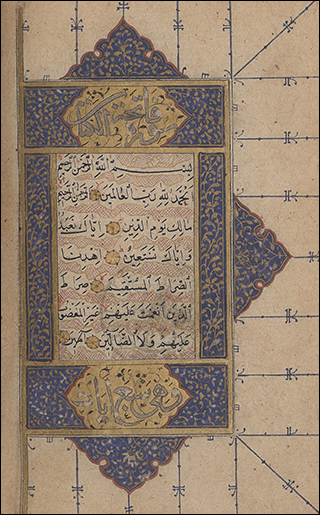 سورة فاتحة الكتاب
بسم الله الرحمن الرحيم
الحمد لله رب العالمين الرحمن الرحيم
مالك يوم الدين اياك نعبد
واياك نستعين اهدنا
الصراط المستقيم صراط
الذين انعمت عليهم غير المغضوب
عليهم ولا الضالين آمين
وهي سبع آيات